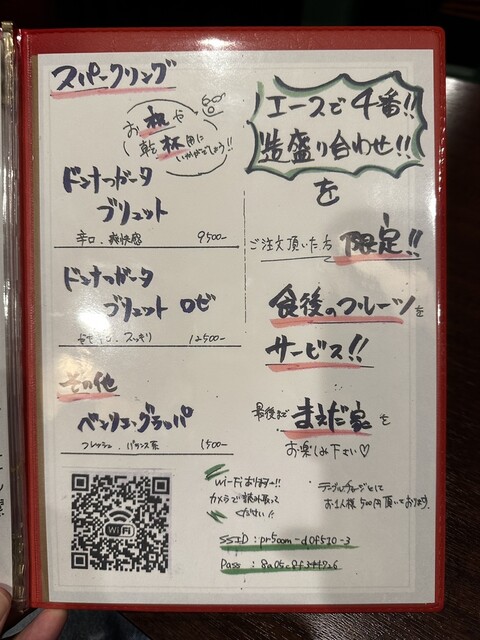 スパークリング
お祝や
乾杯用に
いかがでしょう!!
ドンナフガータ
ブリュット
辛口、爽快感 9500-
ドンナフガータ
ブリュット ロゼ
スッキリ 12500-
その他
ベンリエ・グラッパ
フレッシュ、バランス系 1500-
エースで4番!!
造盛り合わせ!!
を
ご注文頂いた方 限定!!
食後のフルーツを
サービス!!
最後まで まえだ家を
お楽しみ下さい♡
Wi-Fiあります!!
カメラで読み取って
ください!!
テーブルチャージとして
お1人様、500円頂いております。
WiFi
SSID : pr500m-d0f510-3
Pass :